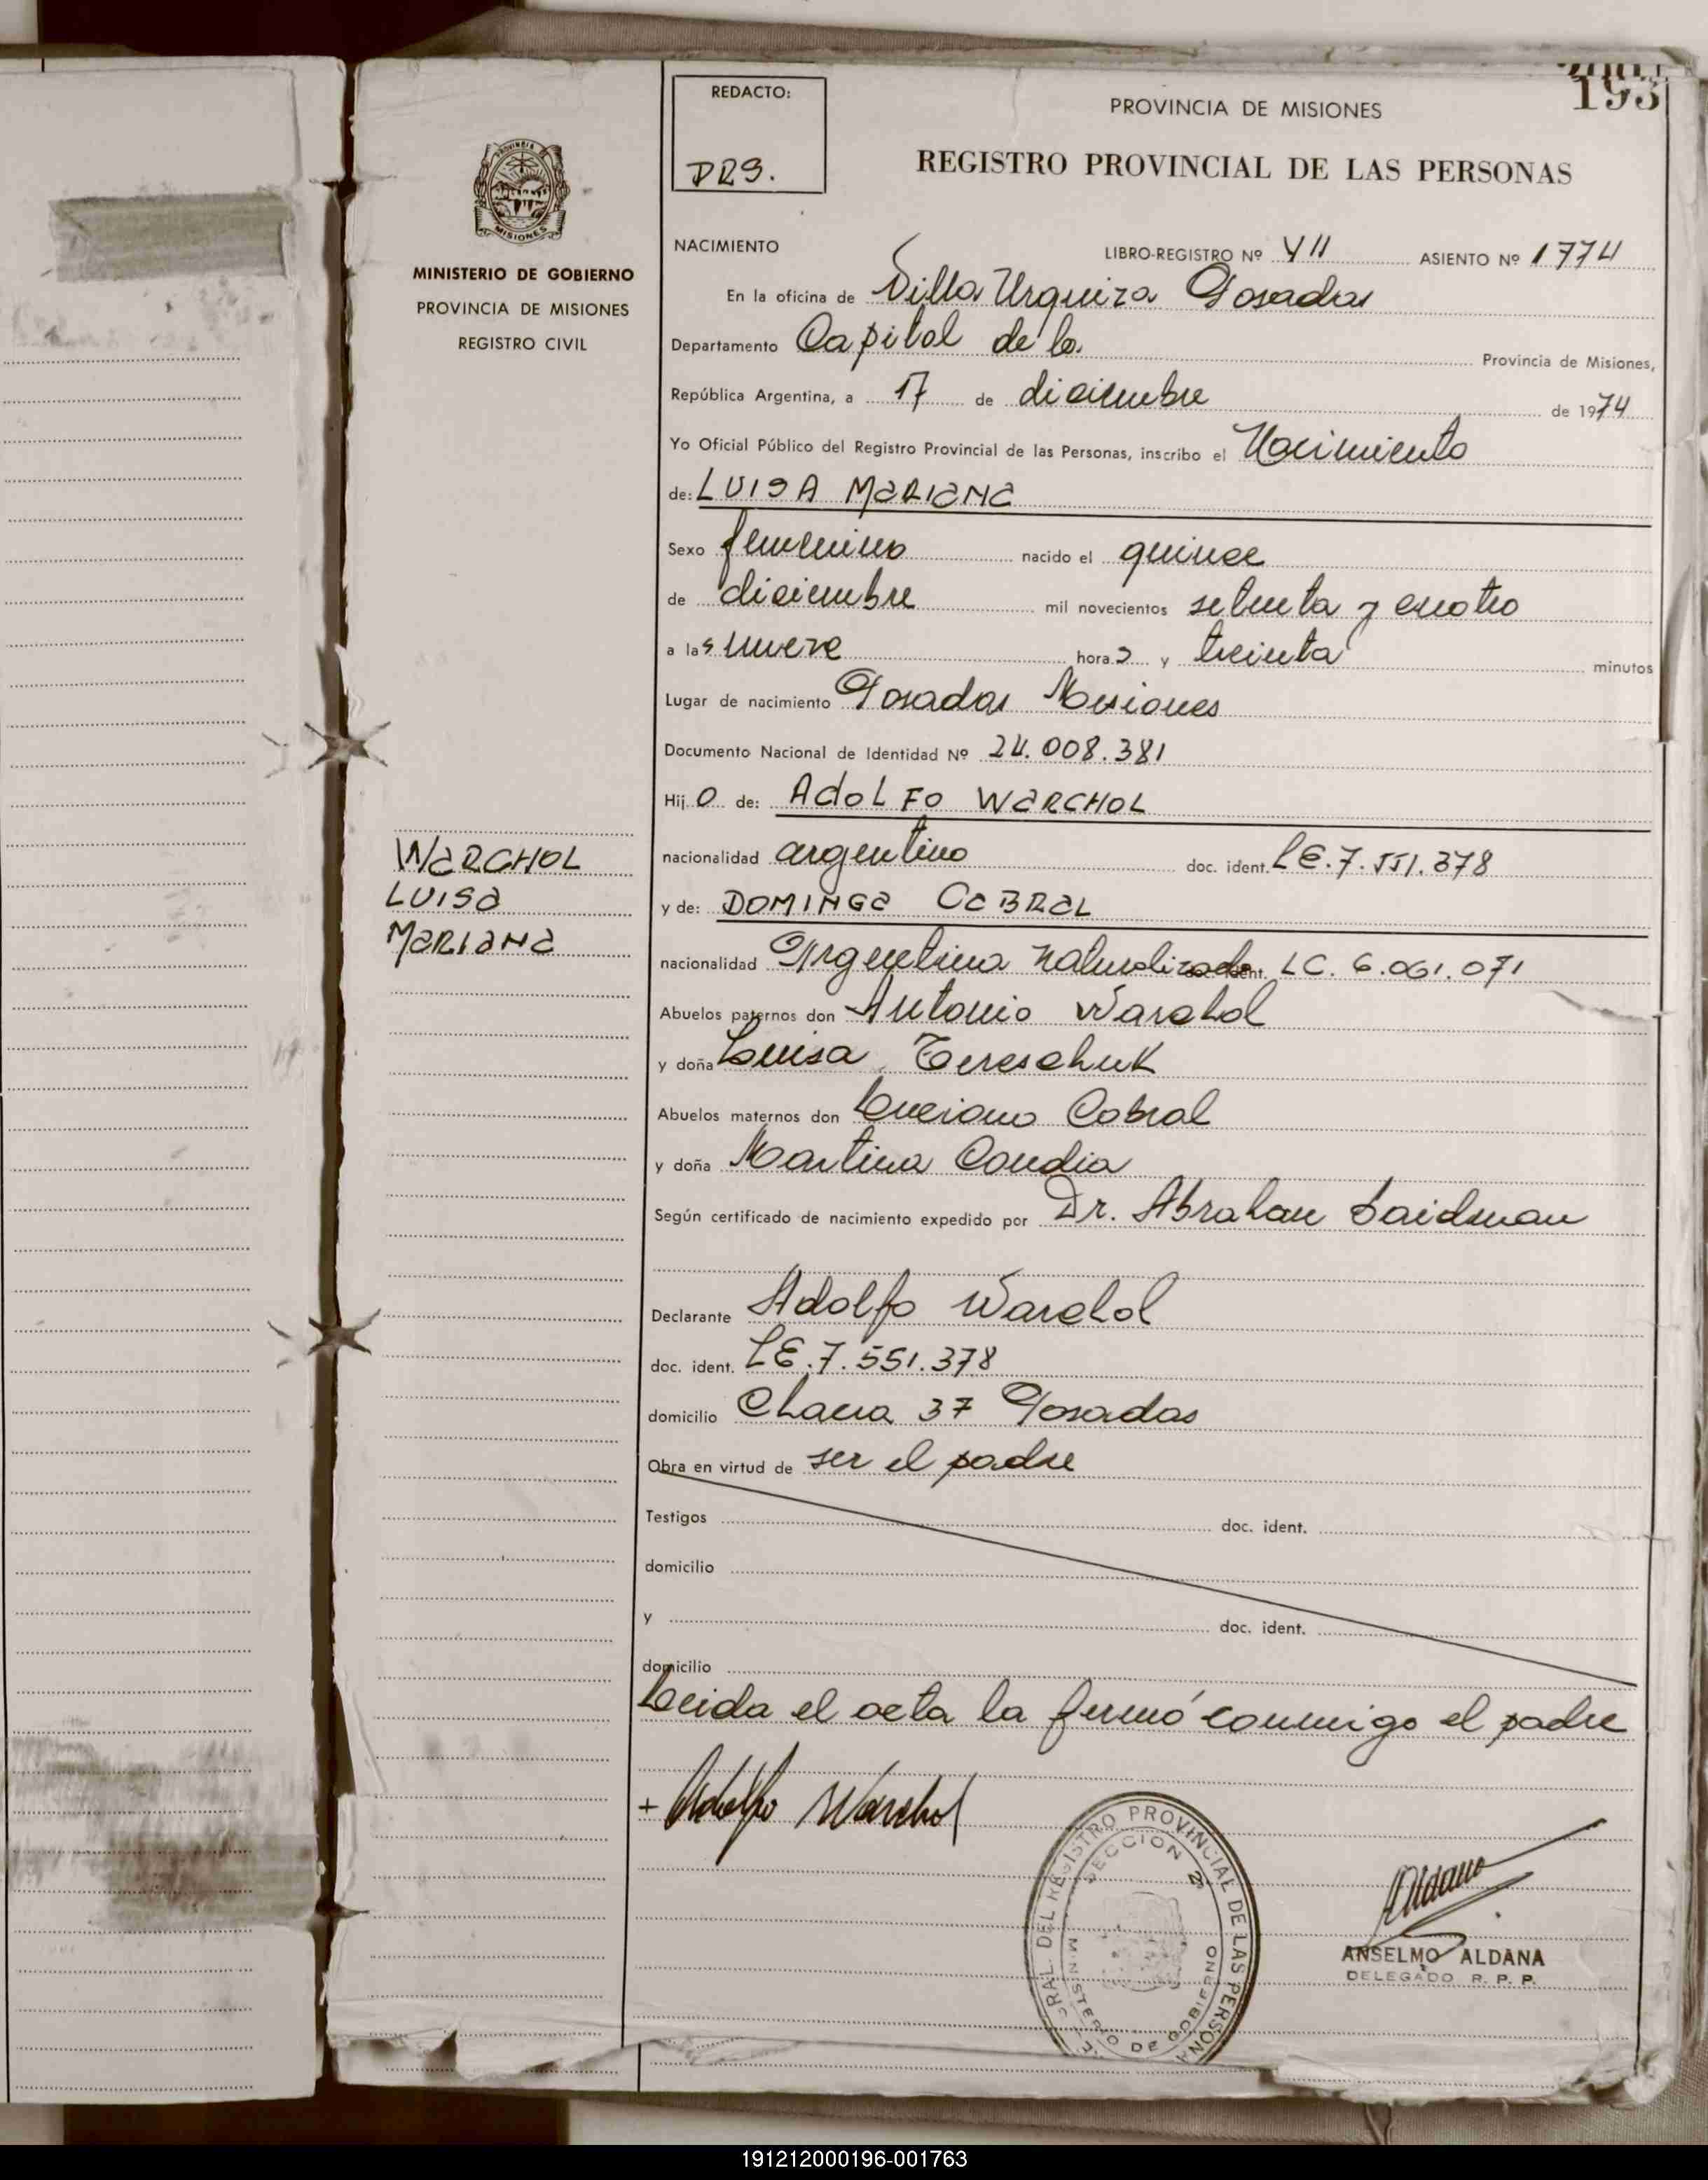 193
REDACTO:
DRS.
PROVINCIA DE MISIONES
REGISTRO PROVINCIAL DE LAS PERSONAS
PROVINCIA DE
MISIONES
MINISTERIO DE GOBIERNO
PROVINCIA DE MISIONES
REGISTRO CIVIL
NACIMIENTO LIBRO-REGISTRO Nº VII ASIENTO Nº 1774
En la oficina de Villa Urquiza Posadas
Departamento Capital de la Provincia de Misiones,
República Argentina, a 17 de diciembre de 1974
Yo Oficial Público del Registro Provincial de las Personas, inscribo el Nacimiento
de: LUISA MARIANA
Sexo femenino nacido el quince
de diciembre mil novecientos setenta y cuatro
a las nueve horas y treinta minutos
Lugar de nacimiento Posadas Misiones
Documento Nacional de Identidad Nº 24.008.381
Hijo de: ADOLFO WARCHOL
nacionalidad argentino doc. ident. LE.7.551.378
y de: DOMINGA CABRAL
nacionalidad Argentina Naturalizada doc. ident. LC. 6.061.071
Abuelos paternos don Antonio Warchol
y doña Luisa Tereschuk
Abuelos maternos don Luciano Cabral
y doña Martina Candia
Según certificado de nacimiento expedido por Dr. Abraham Saidman
WARCHOL
LUISA
MARIANA
Declarante Adolfo Warchol
doc. ident. LE.7.551.378
domicilio Chacra 37 Posadas
Obra en virtud de ser el padre
Testigos doc. ident.
domicilio
y doc. ident.
domicilio
Leida el acta la firmó conmigo el padre
+ Adolfo Warchol
RAL DEL REGISTRO PROVINCIAL DE LAS PERSONA
SECCION 2ª
MINISTERIO DE GOBIERNO
Aldana
ANSELMO ALDANA
DELEGADO R. P. P.
191212000196-001763